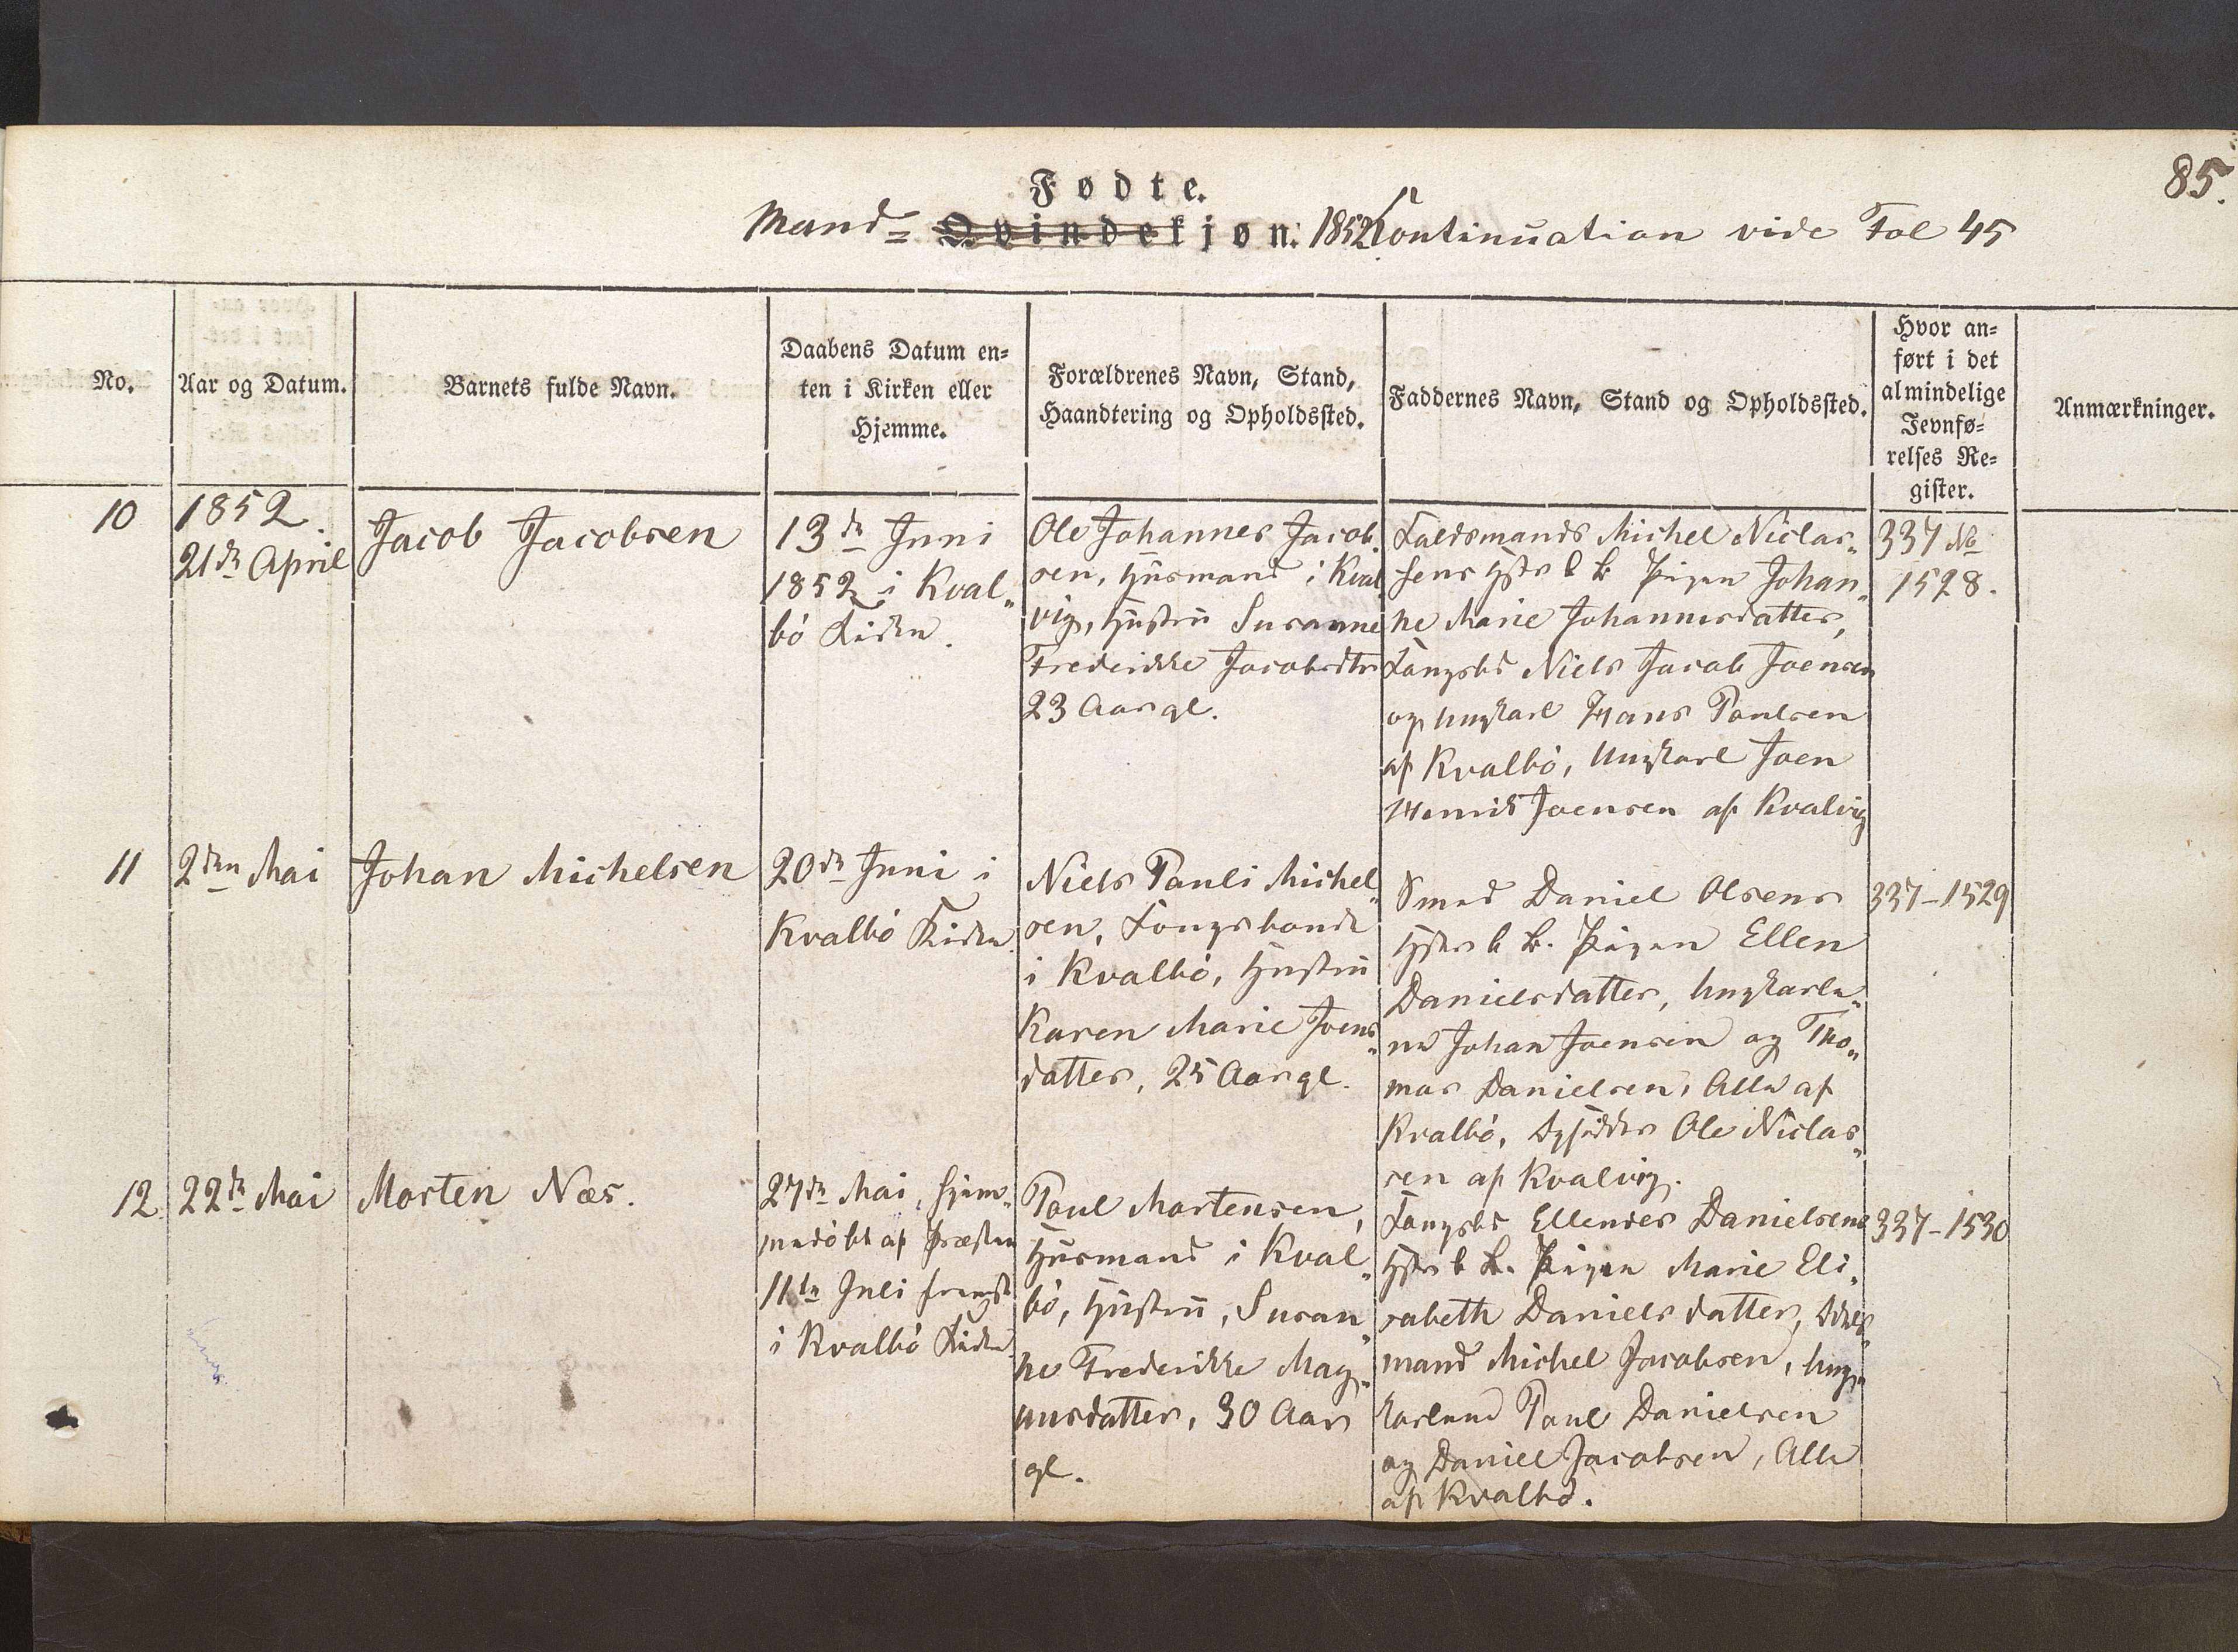 85.
Fødte.
Mand= Qvindekjøn. 1852 Continuation vide Fol 45
No.
Aar og Datum.
Barnets fulde Navn.
Daabens Datum en=
ten i Kirken eller
Hjemme.
Forældrenes Navn, Stand,
Haandtering og Opholdssted.
Faddernes Navn, Stand og Opholdssted.
Hvor an=
ført i det
almindelige
Jevnfø=
relses Re=
gister.
Anmærkninger.
10
1852.
21de April
Jacob Jacobsen
13de Juni
1852 i Kval„
bö Kirke.
Ole Johannes Jacob„
sen, Huusmand i Kval„
vig, Hustru Susanne
Frederikke Jacobsdtr
23 Aar gl.
Michel Niclas„
sens b. B. Pigen Johan„
ne Marie Johannesdatter,
Niels Jacob Joensen
og Ungkarl Hans Poulsen
af Kvalbö, Ungkarl Joen
Henrik Joensen af Kvalvig
337 No
1528.
11
2den Mai
Johan Michelsen
20de Juni i
Kvalbö Kirke.
Niels Pauli Michel„
sen, Kongsbonde
i Kvalbö, Hustru
Karen Marie Joens„
datter, 25 Aar gl.
Smed Daniel Olsens
b. B. Pigen Ellen
Danielsdatter, Ungkarle„
ne Johan Joensen og Tho„
mas Danielsen, Alle af
Kvalbö, Ole Niclas„
sen af Kvalvig.
337-1529
12.
22de Mai
Morten Næs.
27de Mai, hjem„
medöbt af Præsten
11te Juli fremst
i Kvalbö Kirke.
Poul Mortensen,
Huusmand i Kval„
bö, Hustru, Susan„
ne Frederikke Mag„
nusdatter, 30 Aar
gl.
Kongsbd Ellendes Danielsens
b. B. Pigen Marie Eli„
sabeth Danielsdatter,
mand Michel Jacobsen, Ung„
karlene Poul Danielsen
og Daniel Jacobsen, Alle
af Kvalbö.
337-1530